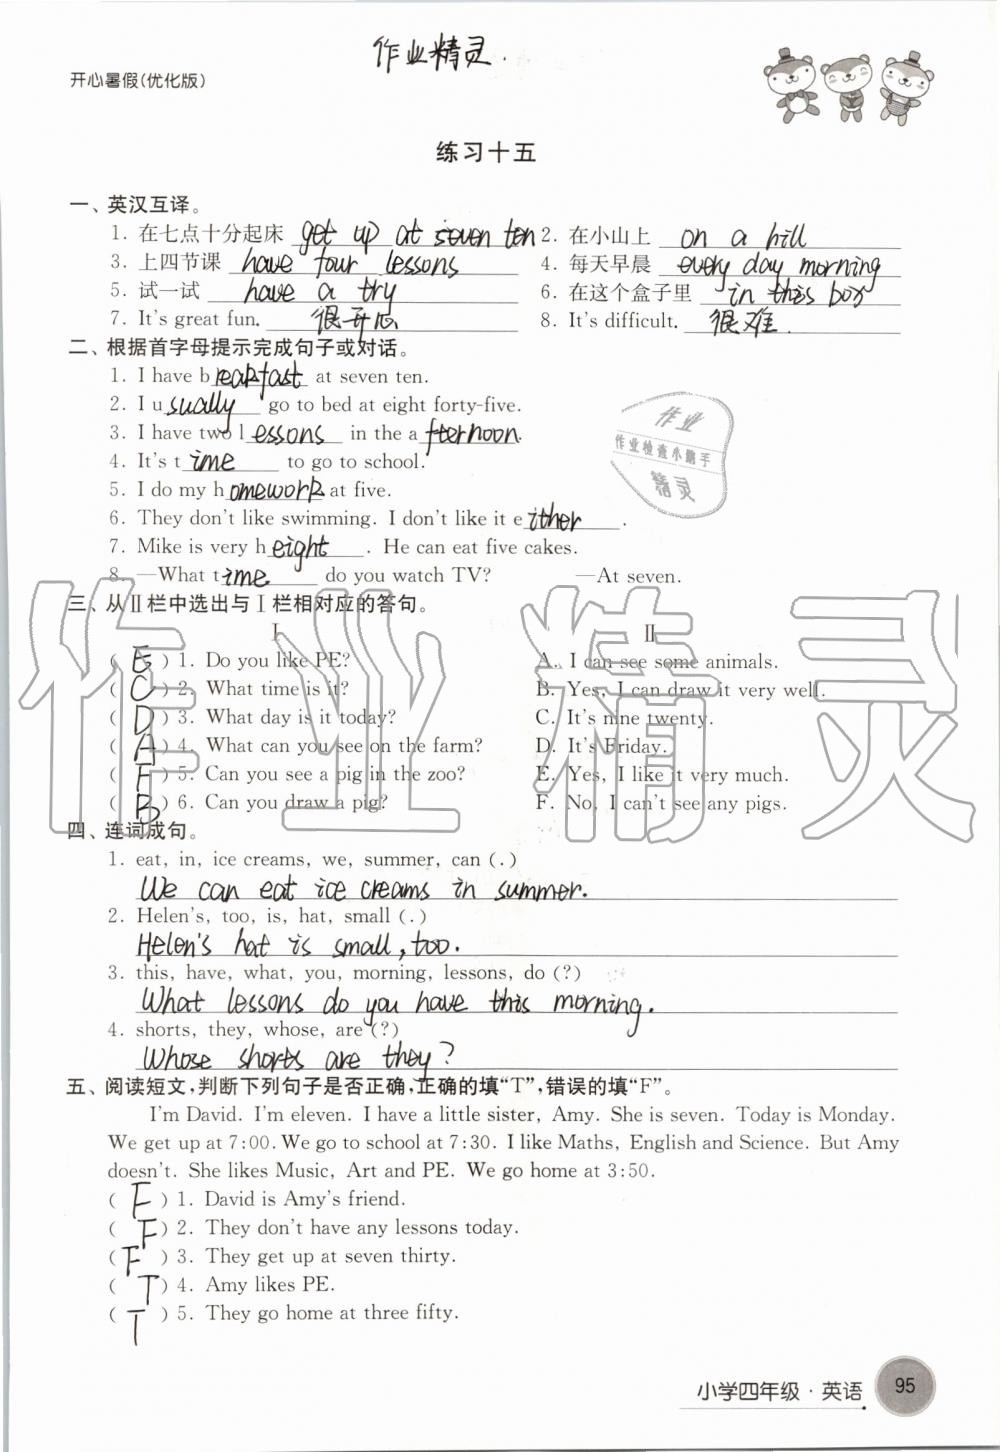 作业精灵.
开心暑假(优化版)
练习十五
一、英汉互译。
1. 在七点十分起床 get up at seven ten 2. 在小山上 on a hill
3. 上四节课 have four lessons 4. 每天早晨 every day morning
5. 试一试 have a try 6. 在这个盒子里 in this box
7. It's great fun. 很开心 8. It's difficult. 很难.
二、根据首字母提示完成句子或对话。
1. I have breakfast at seven ten.
2. I usually go to bed at eight forty-five.
3. I have two lessons in the afternoon.
4. It's time to go to school.
5. I do my homework at five.
6. They don't like swimming. I don't like it either.
7. Mike is very height. He can eat five cakes.
8. —What time do you watch TV? —At seven.
作业
作业检查小帮手
精灵
三、从Ⅱ栏中选出与Ⅰ栏相对应的答句。
Ⅰ Ⅱ
( E ) 1. Do you like PE? A. I can see some animals.
( C ) 2. What time is it? B. Yes, I can draw it very well.
( D ) 3. What day is it today? C. It's nine twenty.
( A ) 4. What can you see on the farm? D. It's Friday.
( F ) 5. Can you see a pig in the zoo? E. Yes, I like it very much.
( B ) 6. Can you draw a pig? F. No, I can't see any pigs.
作业精灵
四、连词成句。
1. eat, in, ice creams, we, summer, can (.)
We can eat ice creams in summer.
2. Helen's, too, is, hat, small (.)
Helen's hat is small, too.
3. this, have, what, you, morning, lessons, do (?)
What lessons do you have this morning.
4. shorts, they, whose, are (?)
Whose shorts are they?
五、阅读短文,判断下列句子是否正确,正确的填“T”,错误的填“F”。
I'm David. I'm eleven. I have a little sister, Amy. She is seven. Today is Monday.
We get up at 7:00. We go to school at 7:30. I like Maths, English and Science. But Amy
doesn't. She likes Music, Art and PE. We go home at 3:50.
( F ) 1. David is Amy's friend.
( F ) 2. They don't have any lessons today.
( F ) 3. They get up at seven thirty.
( T ) 4. Amy likes PE.
( T ) 5. They go home at three fifty.
小学四年级·英语 95